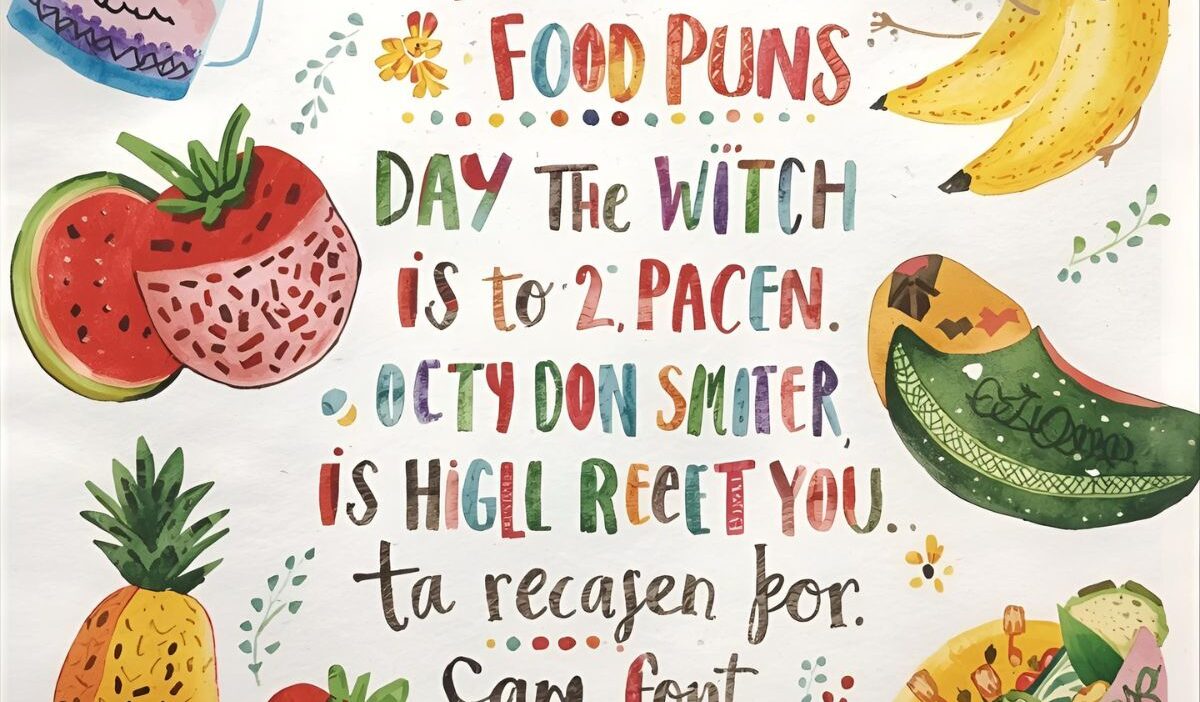 FOOD PUNS
DAY THE WITCH
is to 2, PACEN.
OCTY DON SMITER,
is HIGLL REEET YOU.
ta recagen por.
Sam font